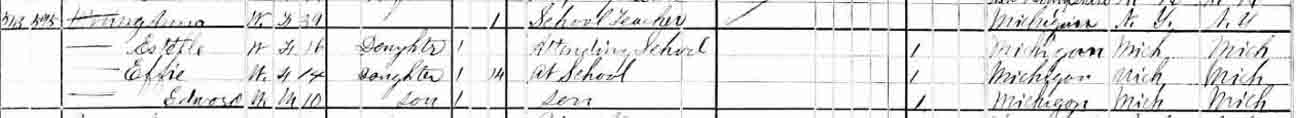 Young Anna W F 39 1 School Teacher Michigan N. Y. N. Y
— Estelle W F 16 Daughter 1 Attending School 1 Michigan Mich Mich
— Effie W F 14 Daughter 1 14 At School 1 Michigan Mich Mich
— Edward W M 10 son 1 son 1 Michigan Mich Mich